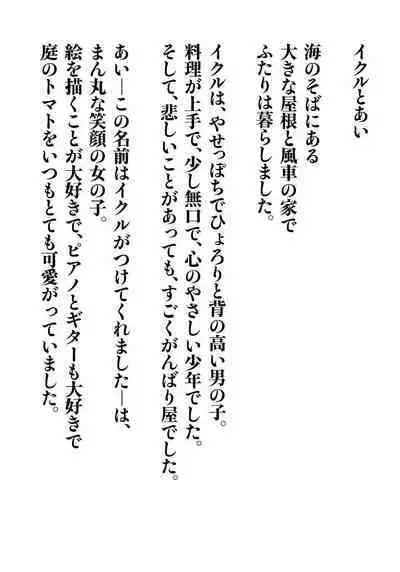 イクルとあい
海のそばにある
大きな屋根と風車の家で
ふたりは暮らしました。
イクルは、やせっぽちでひょろりと背の高い男の子。
料理が上手で、少し無口で、心のやさしい少年でした。
そして、悲しいことがあっても、すごくがんばり屋でした。
あい―この名前はイクルがつけてくれました―は、
まん丸な笑顔の女の子。
絵を描くことが大好きで、ピアノとギターも大好きで
庭のトマトをいつもとても可愛がっていました。